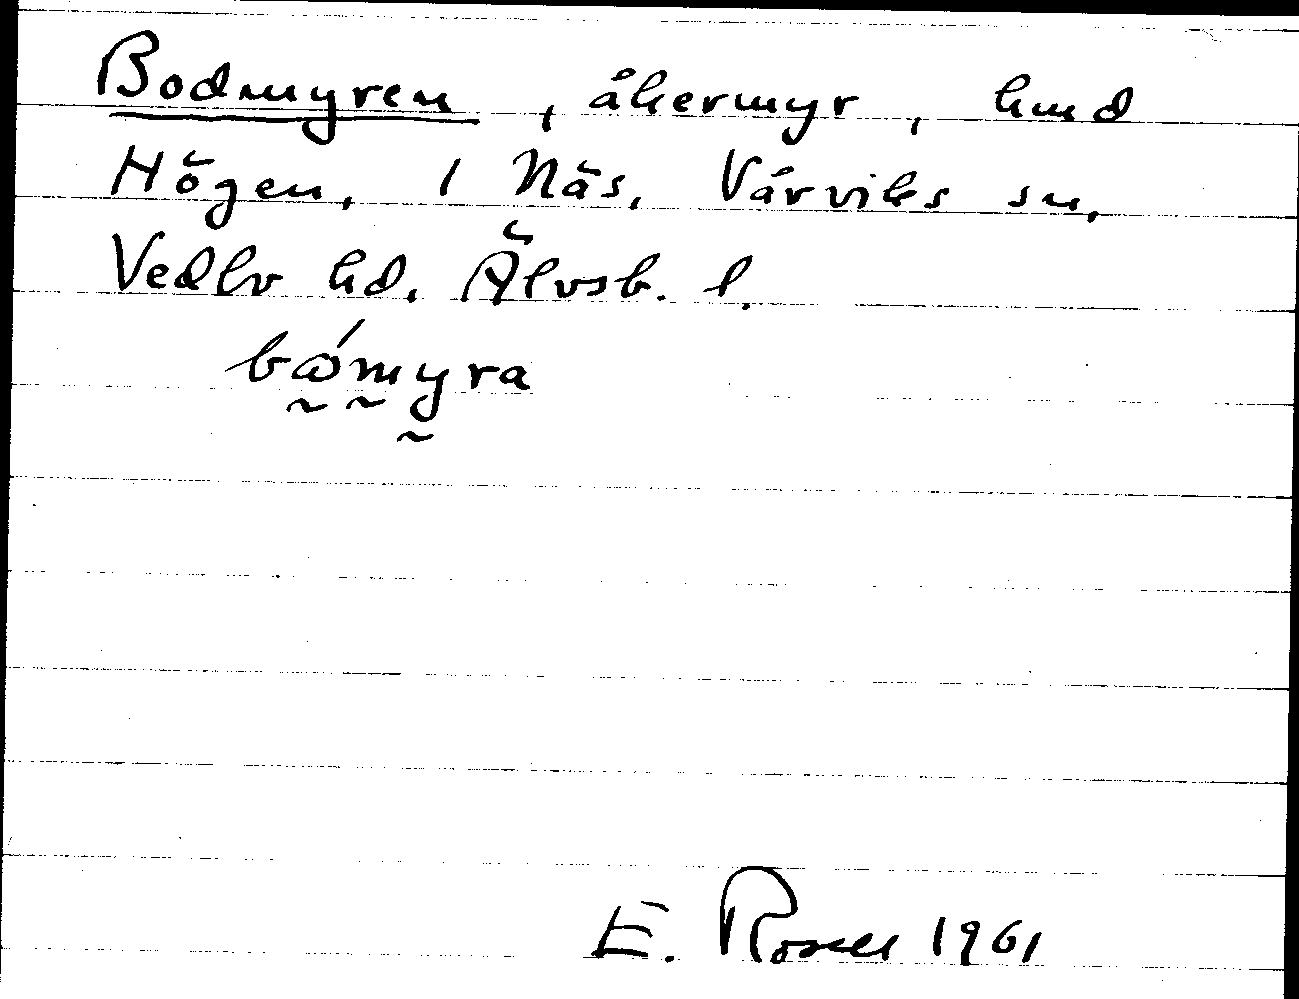 Bodmyren, åkermyr, hmd
Högen, 1 Näs, Vårviks sn,
Vedbo hd. Älvsb. l.
bω´myra
E. Rosell 1961